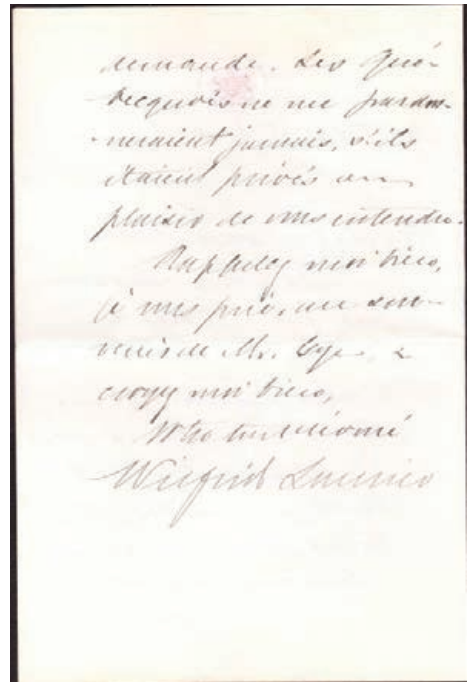 demande. Les Qué-
becquois ne me pardon-
neraient jamais, s'ils
étaient privés du
plaisir de vous entendre.
Rappelez moi bien,
je vous prie, au sou-
venir de Mr. Gye &
croyez moi bien,
Votre tout dévoué
Wilfrid Laurier